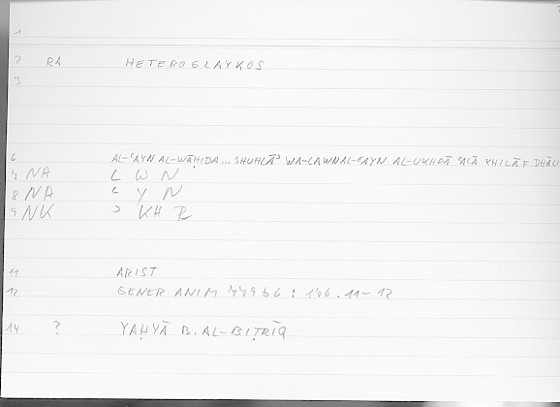 1
2 RA HETEROGLAYKOS
3
6 AL-ʿAYN AL-WĀḤIDA... SHUHLĀʾ WA-LAWN AL-ʿAYN AL-UKHRĀ ʿALĀ KHILĀF DHĀLI
7 NA L W N
8 NA ʿ Y N
9 NK ʾ KH R
11 ARIST
12 GENER ANIM 779b6 : 176.11-12
14 ? YAḤYĀ B. AL-BIṬRĪQ